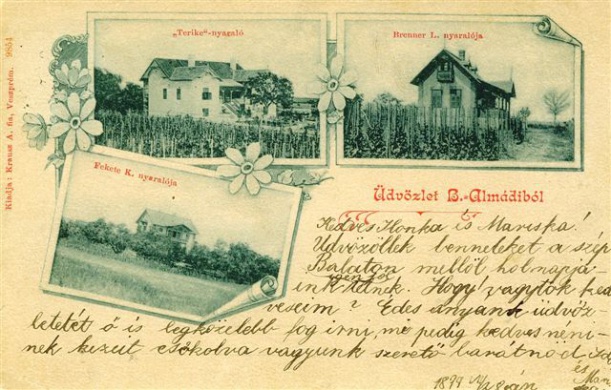 „Terike"-nyaraló
Brenner L. nyaralója
Fekete K. nyaralója
Kiadja: Krausz A. fia, Veszprém. 9854
Üdvözlet B.-Almádiból
Kedves Ilonka és Mariska!
Üdvözöllek benneteket a szép
Balaton mellől, hol napja-
ink telnek. Hogy vagytok ked
veseim? Édes anyank üdvöz-
letét ő is legközelebb fog irni, mi pedig kedves néni-
nek kezeit csókolva vagyunk szerető barátnőd,
és
1899